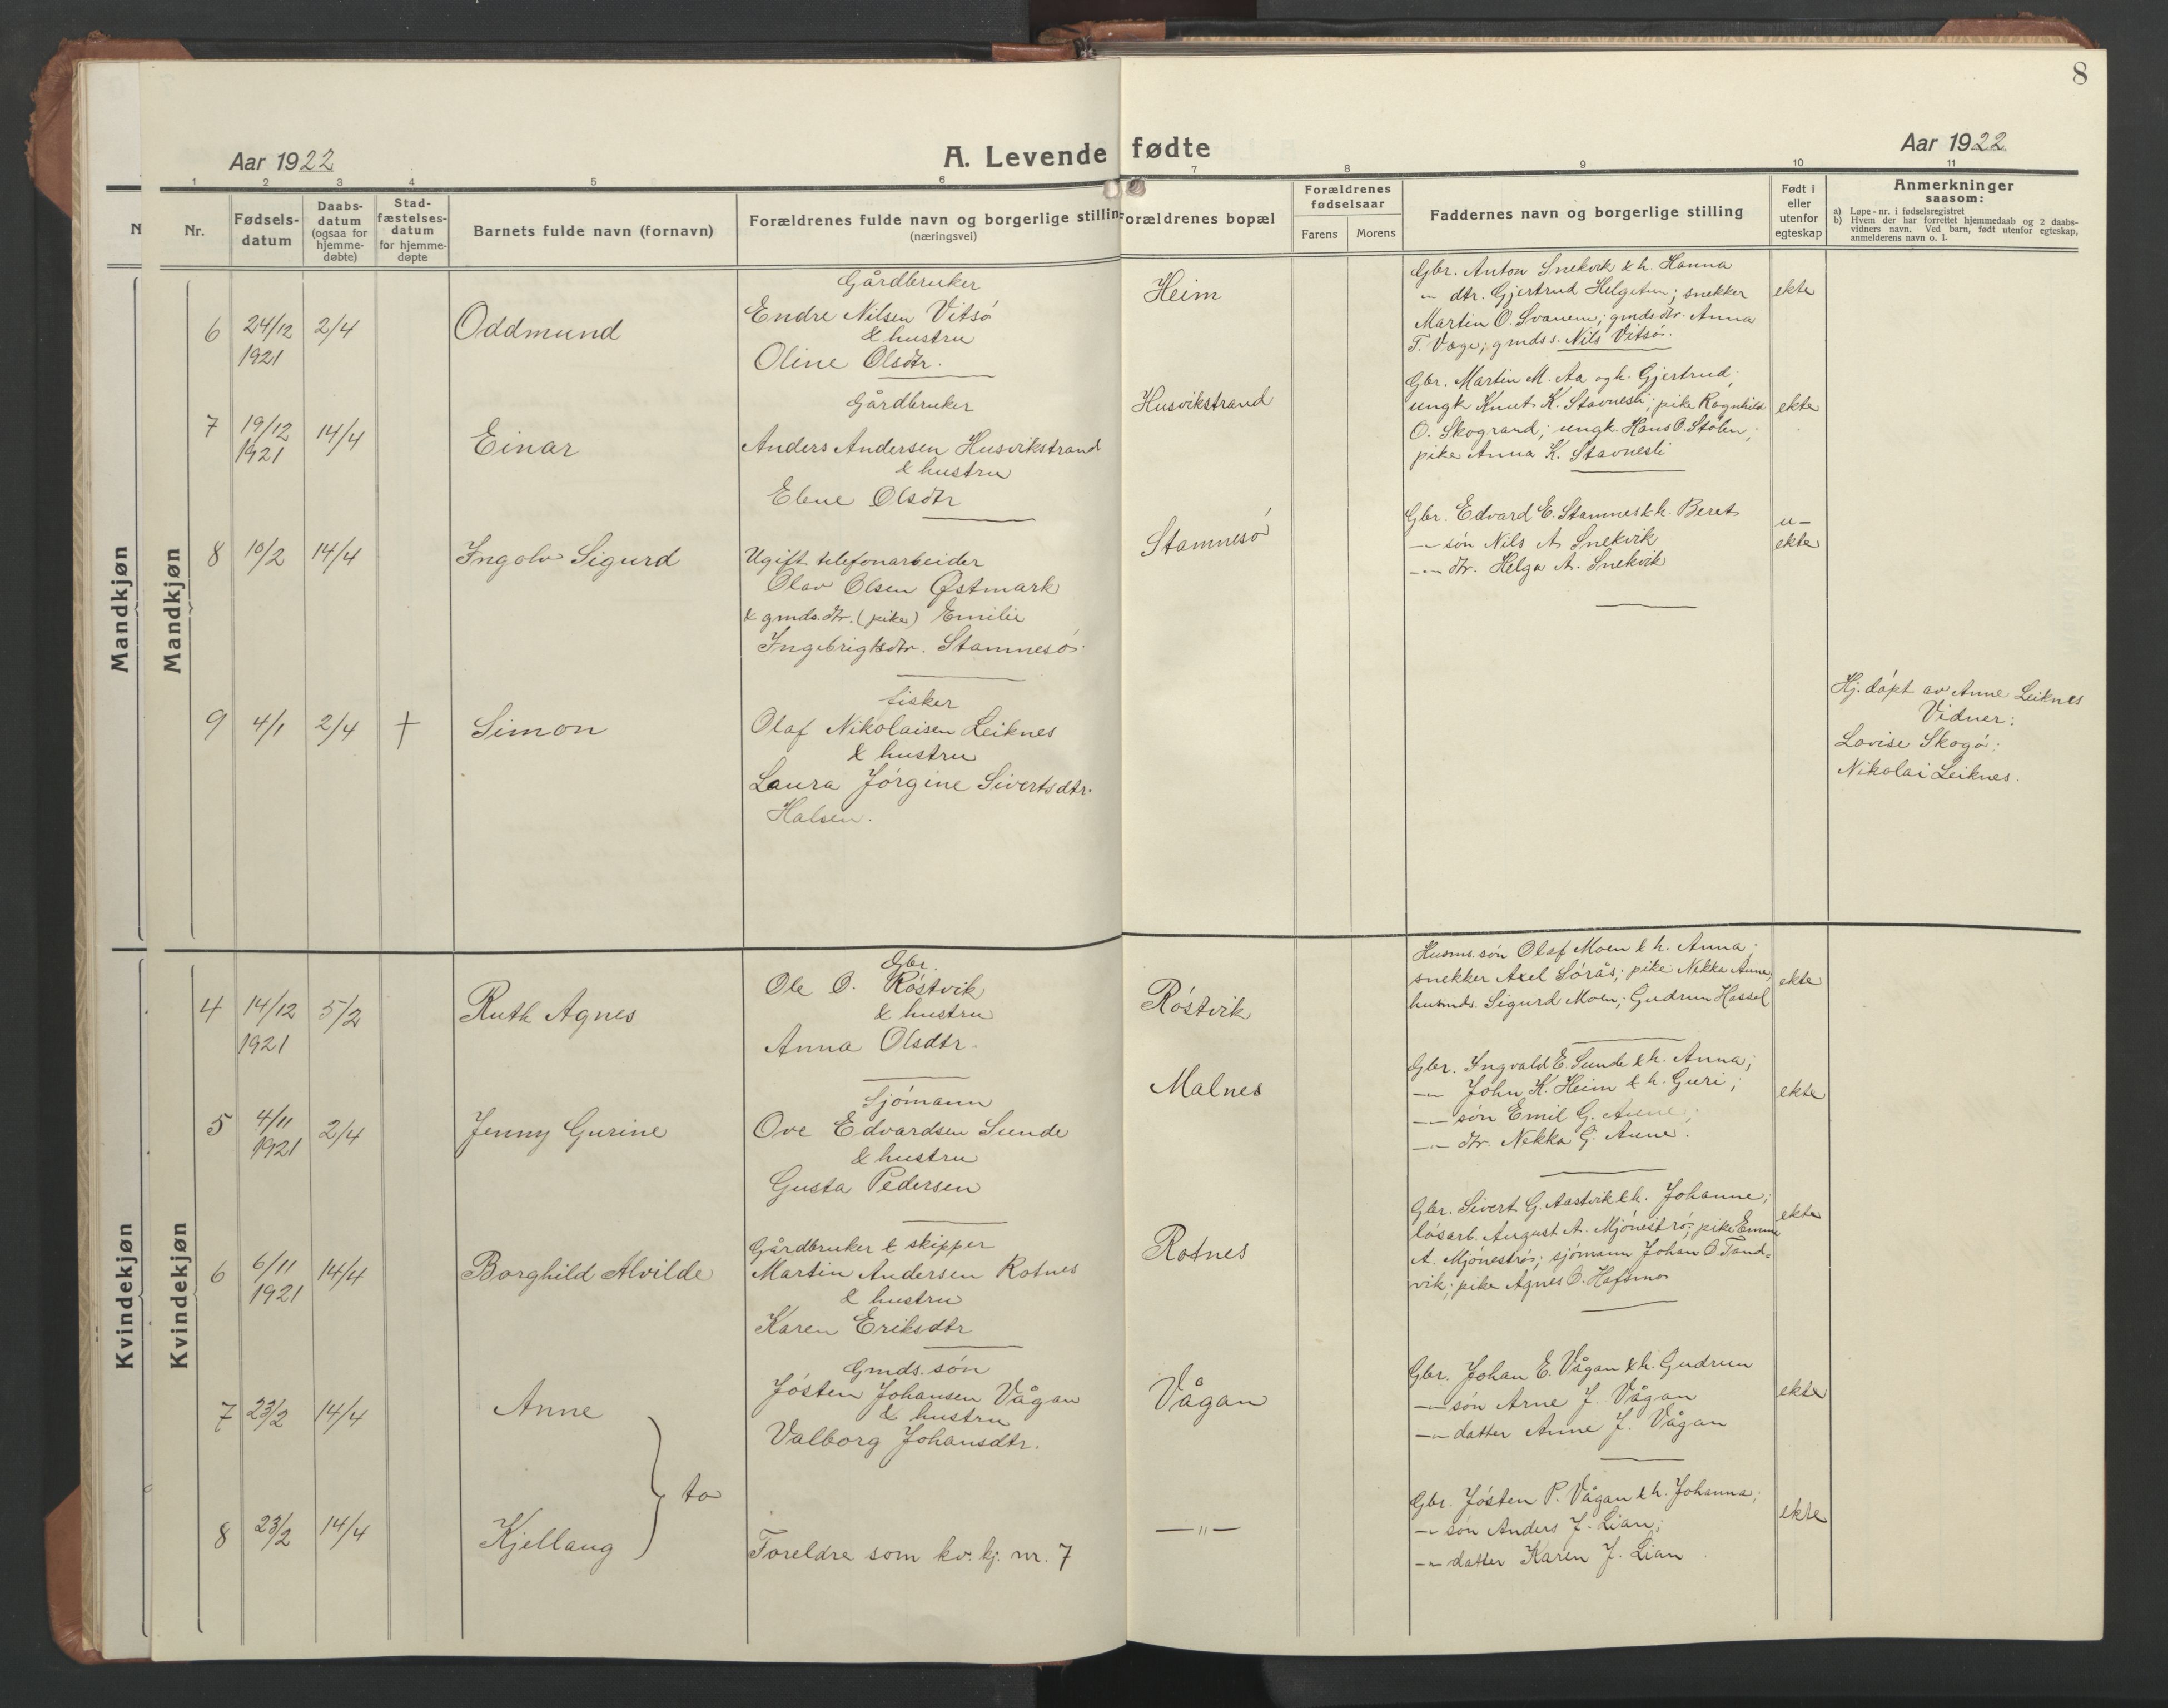 8
Aar 1922
A. Levende fødte
Aar 1922
1 2 3 4 5 6 7 8 9 10 11
N
Nr.
Fødsels-
datum
Daabs-
datum
(ogsaa for
hjemme-
døbte)
Stad-
fæstelses-
datum
for hjemme-
døpte
Barnets fulde navn (fornavn)
Forældrenes fulde navn og borgerlige stilling
(næringsvei)
Forældrenes bopæl
Forældrenes
fødselsaar
Farens Morens
Faddernes navn og borgerlige stilling
Født i
eller
utenfor
egteskap
Anmerkninger
saasom:
a) Løpe-nr. i fødselsregistret
b) Hvem der har forrettet hjemmedaab og 2 daabs-
vidners navn. Ved barn, født utenfor egteskap,
anmelderens navn o. l.
Mandkjøn
Mandkjøn
6 24/12 2/4
1921
Oddmund
Gårdbruker
Endre Nilsen Vitsö
& hustru
Oline Olsdtr.
Heim
Gbr. Anton Snekvik & h. Hanna
-"- dtr. Gjertrud Helgetun; snekker
Martin O. Svanem; gmds. dtr. Anna
T. Væge; gmds s. Nils Vitsö.
ekte
7 19/12 14/4
1921
Einar
Gårdbruker
Anders Andersen Husvikstrand
& hustru
Elene Olsdtr
Husvikstrand
Gbr. Martin M. Aa og h. Gjertrud;
ungk Knut K. Stavnesli; pike Ragnhild
O. Skogrand; ungk. Hans O. Stölen;
pike Anna K. Stavnesli
ekte
8 10/2 14/4
Ingolv Sigurd
Ugift telefonarbeider
Olav Olsen Østmark
& gmds. dtr. (pike) Emilie
Ingebrigtsdtr. Stamnesö.
Stamnesö
Gbr. Edvard E. Stamnes & h. Beret
-"- sön Nils A Snekvik
-"- dtr. Helga A. Snekvik
u-
ekte
9 4/1 2/4 †
Simon
fisker
Olaf Nikolaisen Leiknes
& hustru
Laura Jörgine Sivertsdtr.
Halsen.
Hj. döpt av Anne Leiknes
Vidner:
Lovise Skogö.
Nikolai Leiknes.
Kvindekjøn
Kvindekjøn
4 14/12 5/2
1921
Ruth Agnes
Gbr.
Ole O. Röstvik
& hustru
Anna Olsdtr.
Röstvik
Husms. sön Olaf Moen & h. Anna;
snekker Axel Sörås; pike Nekka Aune,
husmds. Sigurd Moen; Gudrun Hassel
ekte
5 4/11 2/4
1921
Jenny Gurine
Sjömann
Ove Edvardsen Sunde
& hustru
Gusta Pedersen
Malnes
Gbr. Ingvald E. Sunde & h. Anna;
-"- John K. Heim & h. Guri;
-"- sön Emil G. Aune;
-"- dtr. Nekka G. Aune.
ekte
6 6/11 14/4
1921
Borghild Alvilde
Gårdbruker & skipper
Martin Andersen Rotnes
& hustru
Karen Eriksdtr
Rotnes
Gbr. Sivert G. Aastvik & h. Johanne;
lösarb. August A. Mjöneströ; pike Emma
A. Mjöneströ; sjömann Johan O. Tand-
vik; pike Agnes O. Hafsmo
ekte
7 23/2 14/4
Anne
Gmds. sön
Jösten Johansen Vågan
& hustru
Valborg Johansdtr.
Vågan
Gbr. Johan E. Vågan & h. Gudrun
-"- sön Arne J. Vågan
-"- datter Anne J. Vågan
ekte
} to
8 23/2 14/4
Kjellaug
Foreldre som kv. kj. nr. 7
— " —
Gbr. Jösten P. Vågan & h. Johanna;
-"- sön Anders J. Lian;
-"- datter Karen J. Lian
ekte